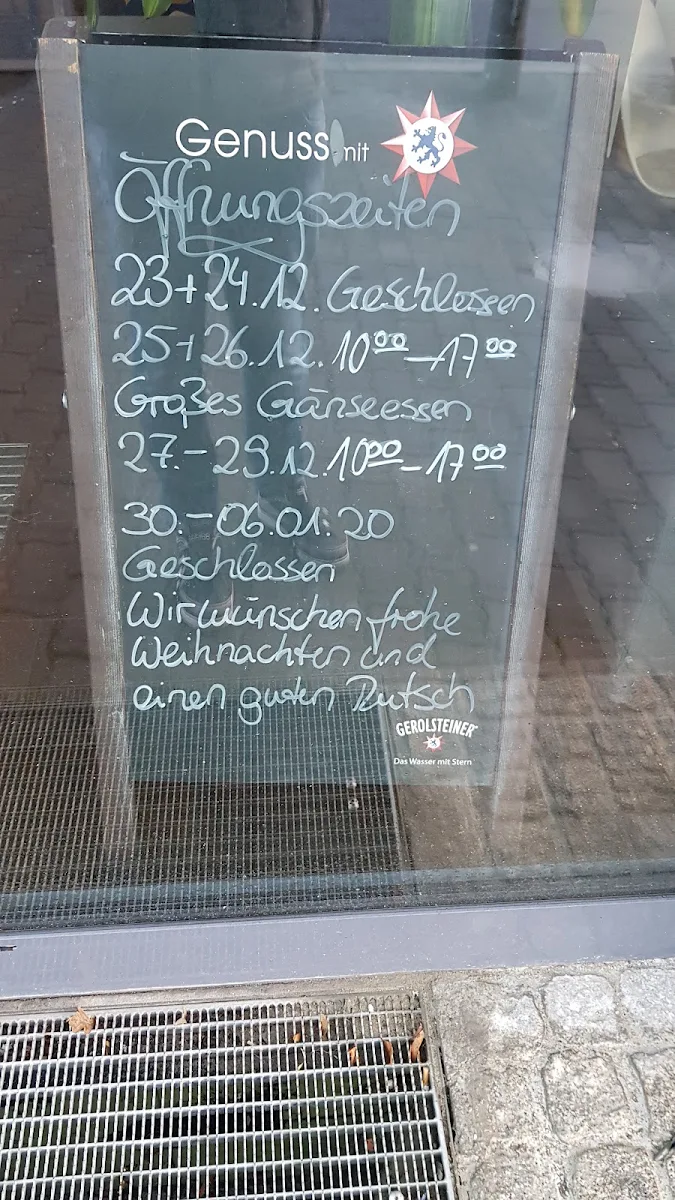 Genuss mit
Öffnungszeiten
23+24.12. Geschlossen
25+26.12. 10⁰⁰-17⁰⁰
Großes Gänseessen
27.-29.12. 10⁰⁰-17⁰⁰
30.-06.01.20
Geschlossen
Wir wünschen frohe
Weihnachten und
einen guten Rutsch
GEROLSTEINER
Das Wasser mit Stern